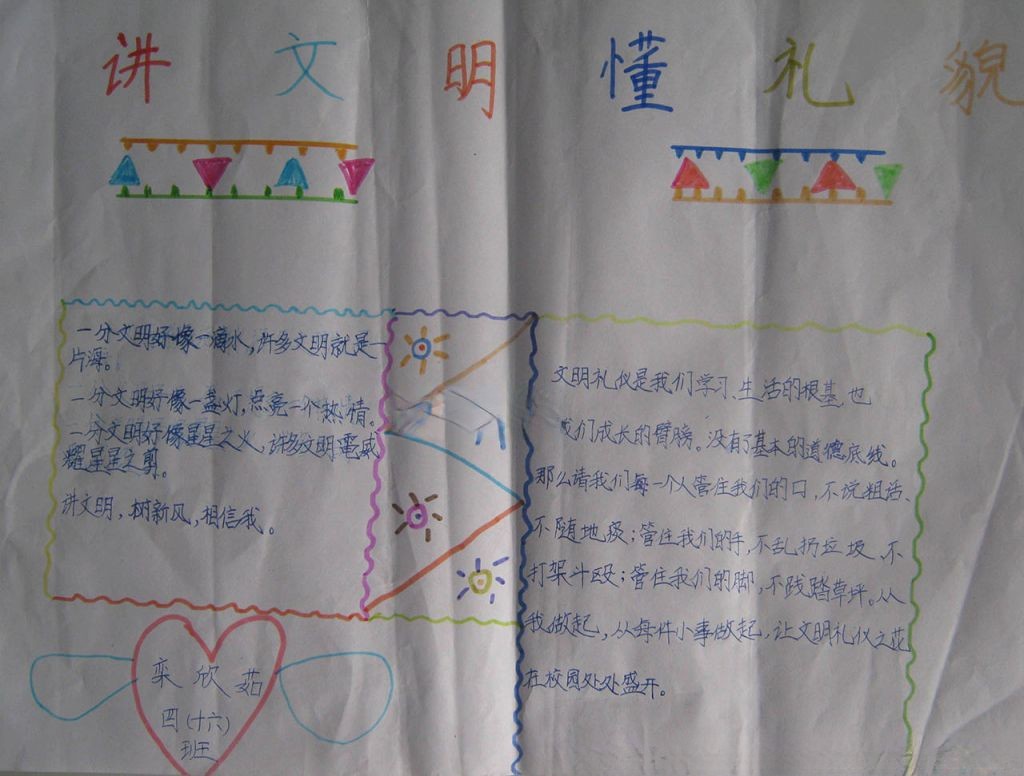 讲文明懂礼貌
一分文明好像一滴水,许多文明就是一
片海。
一分文明好像一盏灯,点亮一个热情。
一分文明好像星星之火,许多文明
耀星星之
讲文明,树新风,相信我。
文明礼仪是我们学习、生活的根基,也
我们成长的臂膀。没有了基本的道德底线。
那么请我们每一个人管住我们的口,不说粗话、
不随地痰;管住我们的手,不乱扔垃圾、不
打架斗殴;管住我们的脚,不践踏草坪。从
我做起,从每件小事做起,让文明礼仪之花
在校园处处盛开。
栾欣茹
四(十六)
班